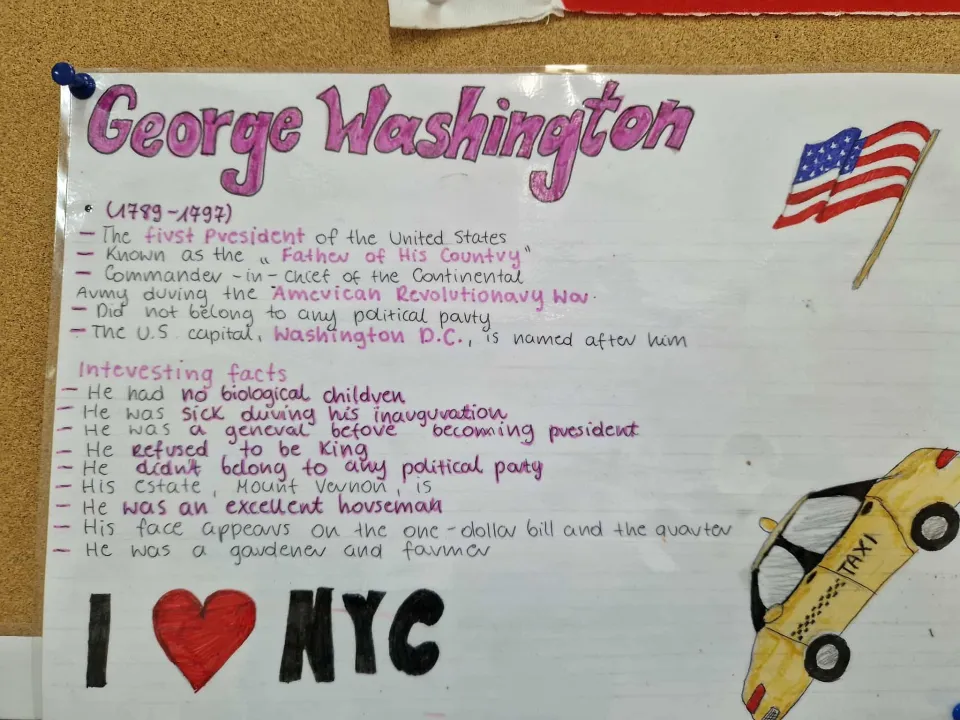 George Washington
• (1789-1797)
- The first President of the United States
- Known as the „Father of His Country"
- Commander-in-Chief of the Continental
Army during the American Revolutionary War.
- Did not belong to any political party
- The U.S. capital, Washington D.C., is named after him
Interesting facts
- He had no biological children
- He was sick during his inauguration
- He was a general before becoming president
- He refused to be King
- He didn't belong to any political party
- His estate, Mount Vernon, is
- He was an excellent horseman
- His face appears on the one-dollar bill and the quarter
- He was a gardener and farmer
TAXI
I ❤ NYC